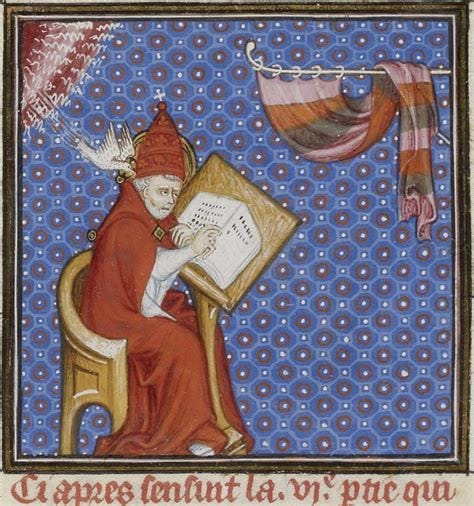 Ci apres sensiut la .vj.e ptie qui